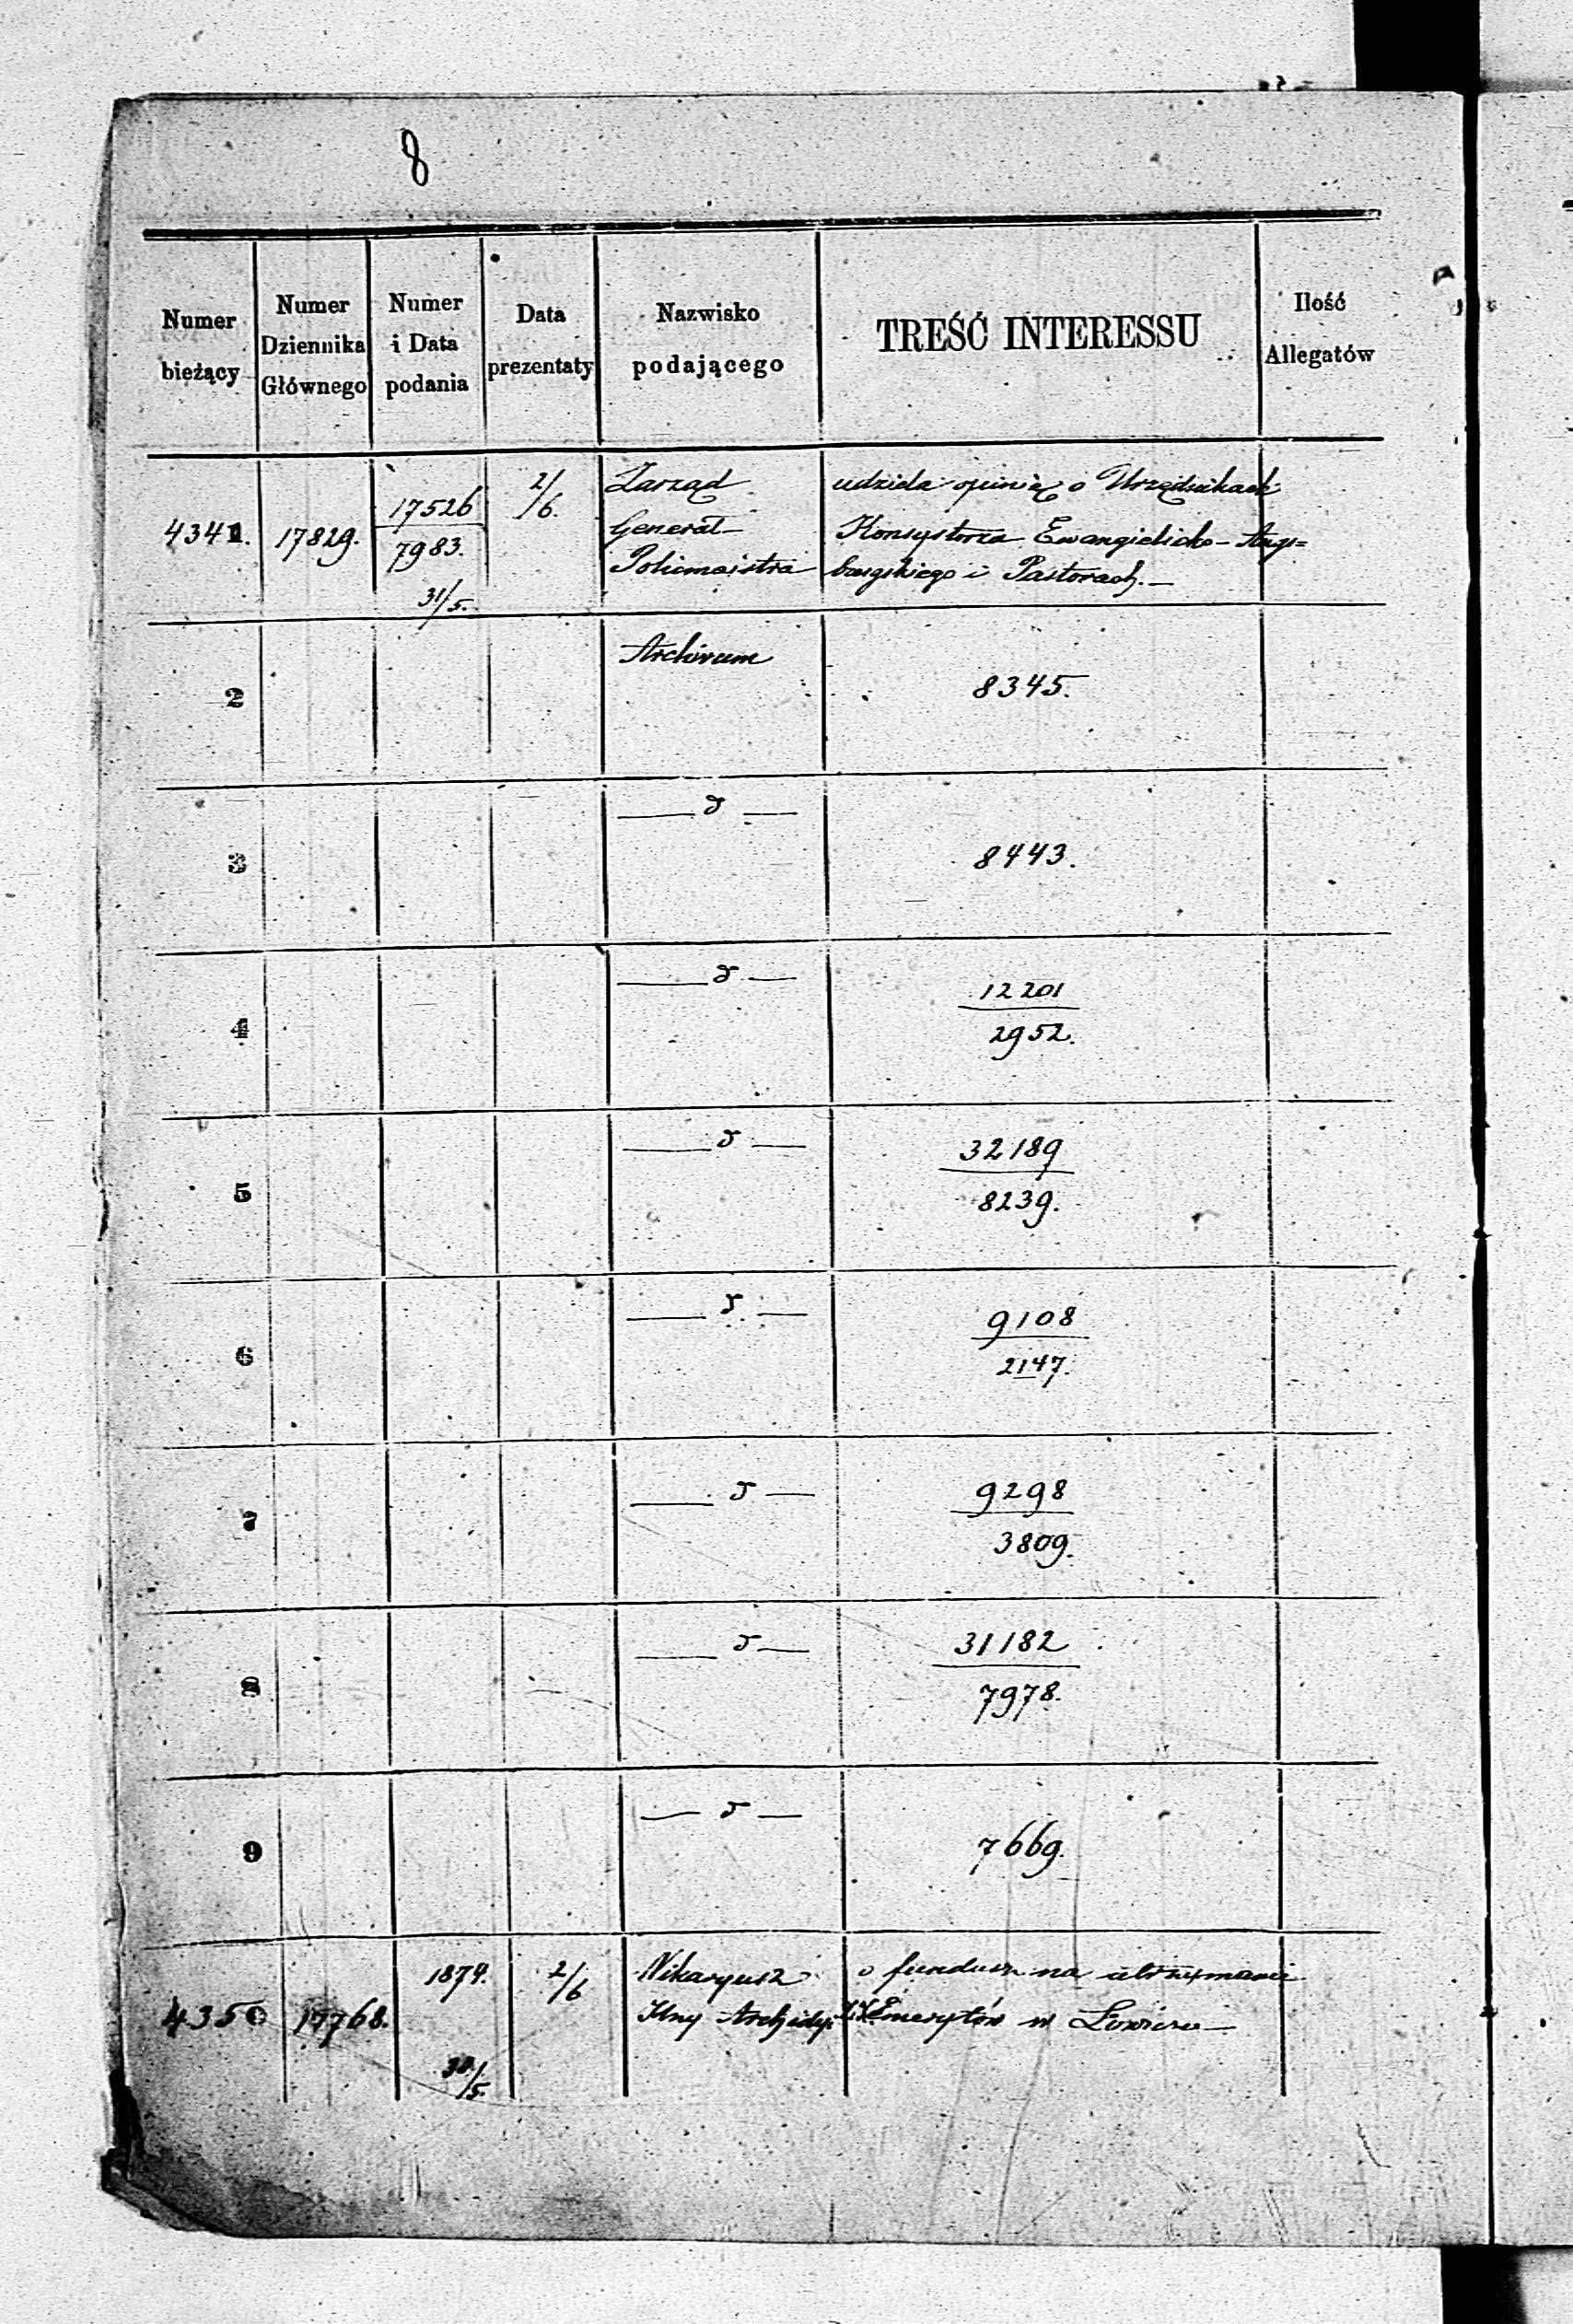 8
Numer bieżący
Numer Dziennika Głównego
Numer i Data podania
Data prezentaty
Nazwisko podającego
TREŚĆ INTERESSU
Ilość Allegatów
4341. 17829. 17526 2/6. Zarząd udziela opinią o Urzędnikach
7983. Generał- Konsystorza Ewangielicko-Augs=
31/5. Policmajstra burgskiego i Pastorach.—
2 Archivum 8345.
3 — d — 8443.
4 — d — 12201
2952.
5 — d — 32189
8239.
6 — d — 9108
2147.
7 — d — 9298
3809.
8 — d — 31182
7978.
9 — d — 7669.
4350 17768. 1874. 2/6 Wikaryusz o fundusz na utrzymanie
Archidy: Emerytów w Łowiczu—
30/5.